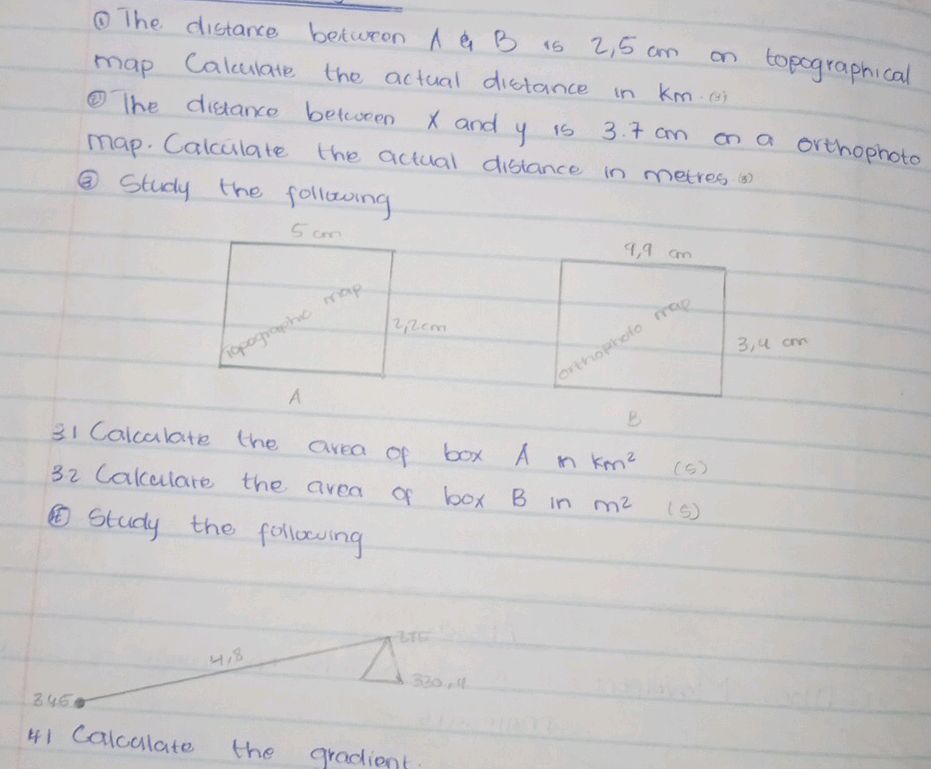 ① The distance between A & B is 2,5 cm on topographical
map Calculate the actual distance in km. (3)
② The distance between X and y is 3.7 cm on a orthophoto
map. Calculate the actual distance in metres (3)
③ Study the following
5 cm
9,9 cm
topographic map
2,2cm
orthophoto map
3,4 cm
A
B
3.1 Calculate the area of box A in km² (5)
3.2 Calculate the area of box B in m² (5)
④ Study the following
4,8
330,4
345
4.1 Calculate the gradient.